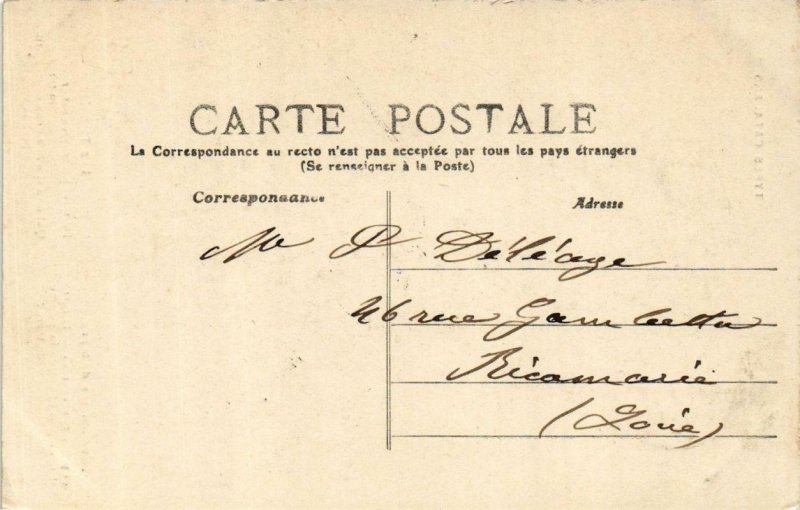 CARTE POSTALE
La Correspondance au recto n'est pas acceptée par tous les pays étrangers
(Se renseigner à la Poste)
Correspondance
Adresse
Mr P Déléage
46 rue Gambetta
Ricamarie
(Loire)